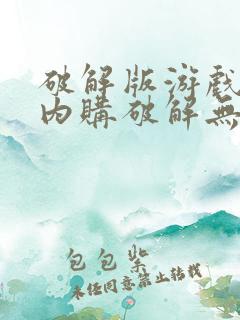 破解版游戲
内購破解無
包包紫
未经同意禁止转载